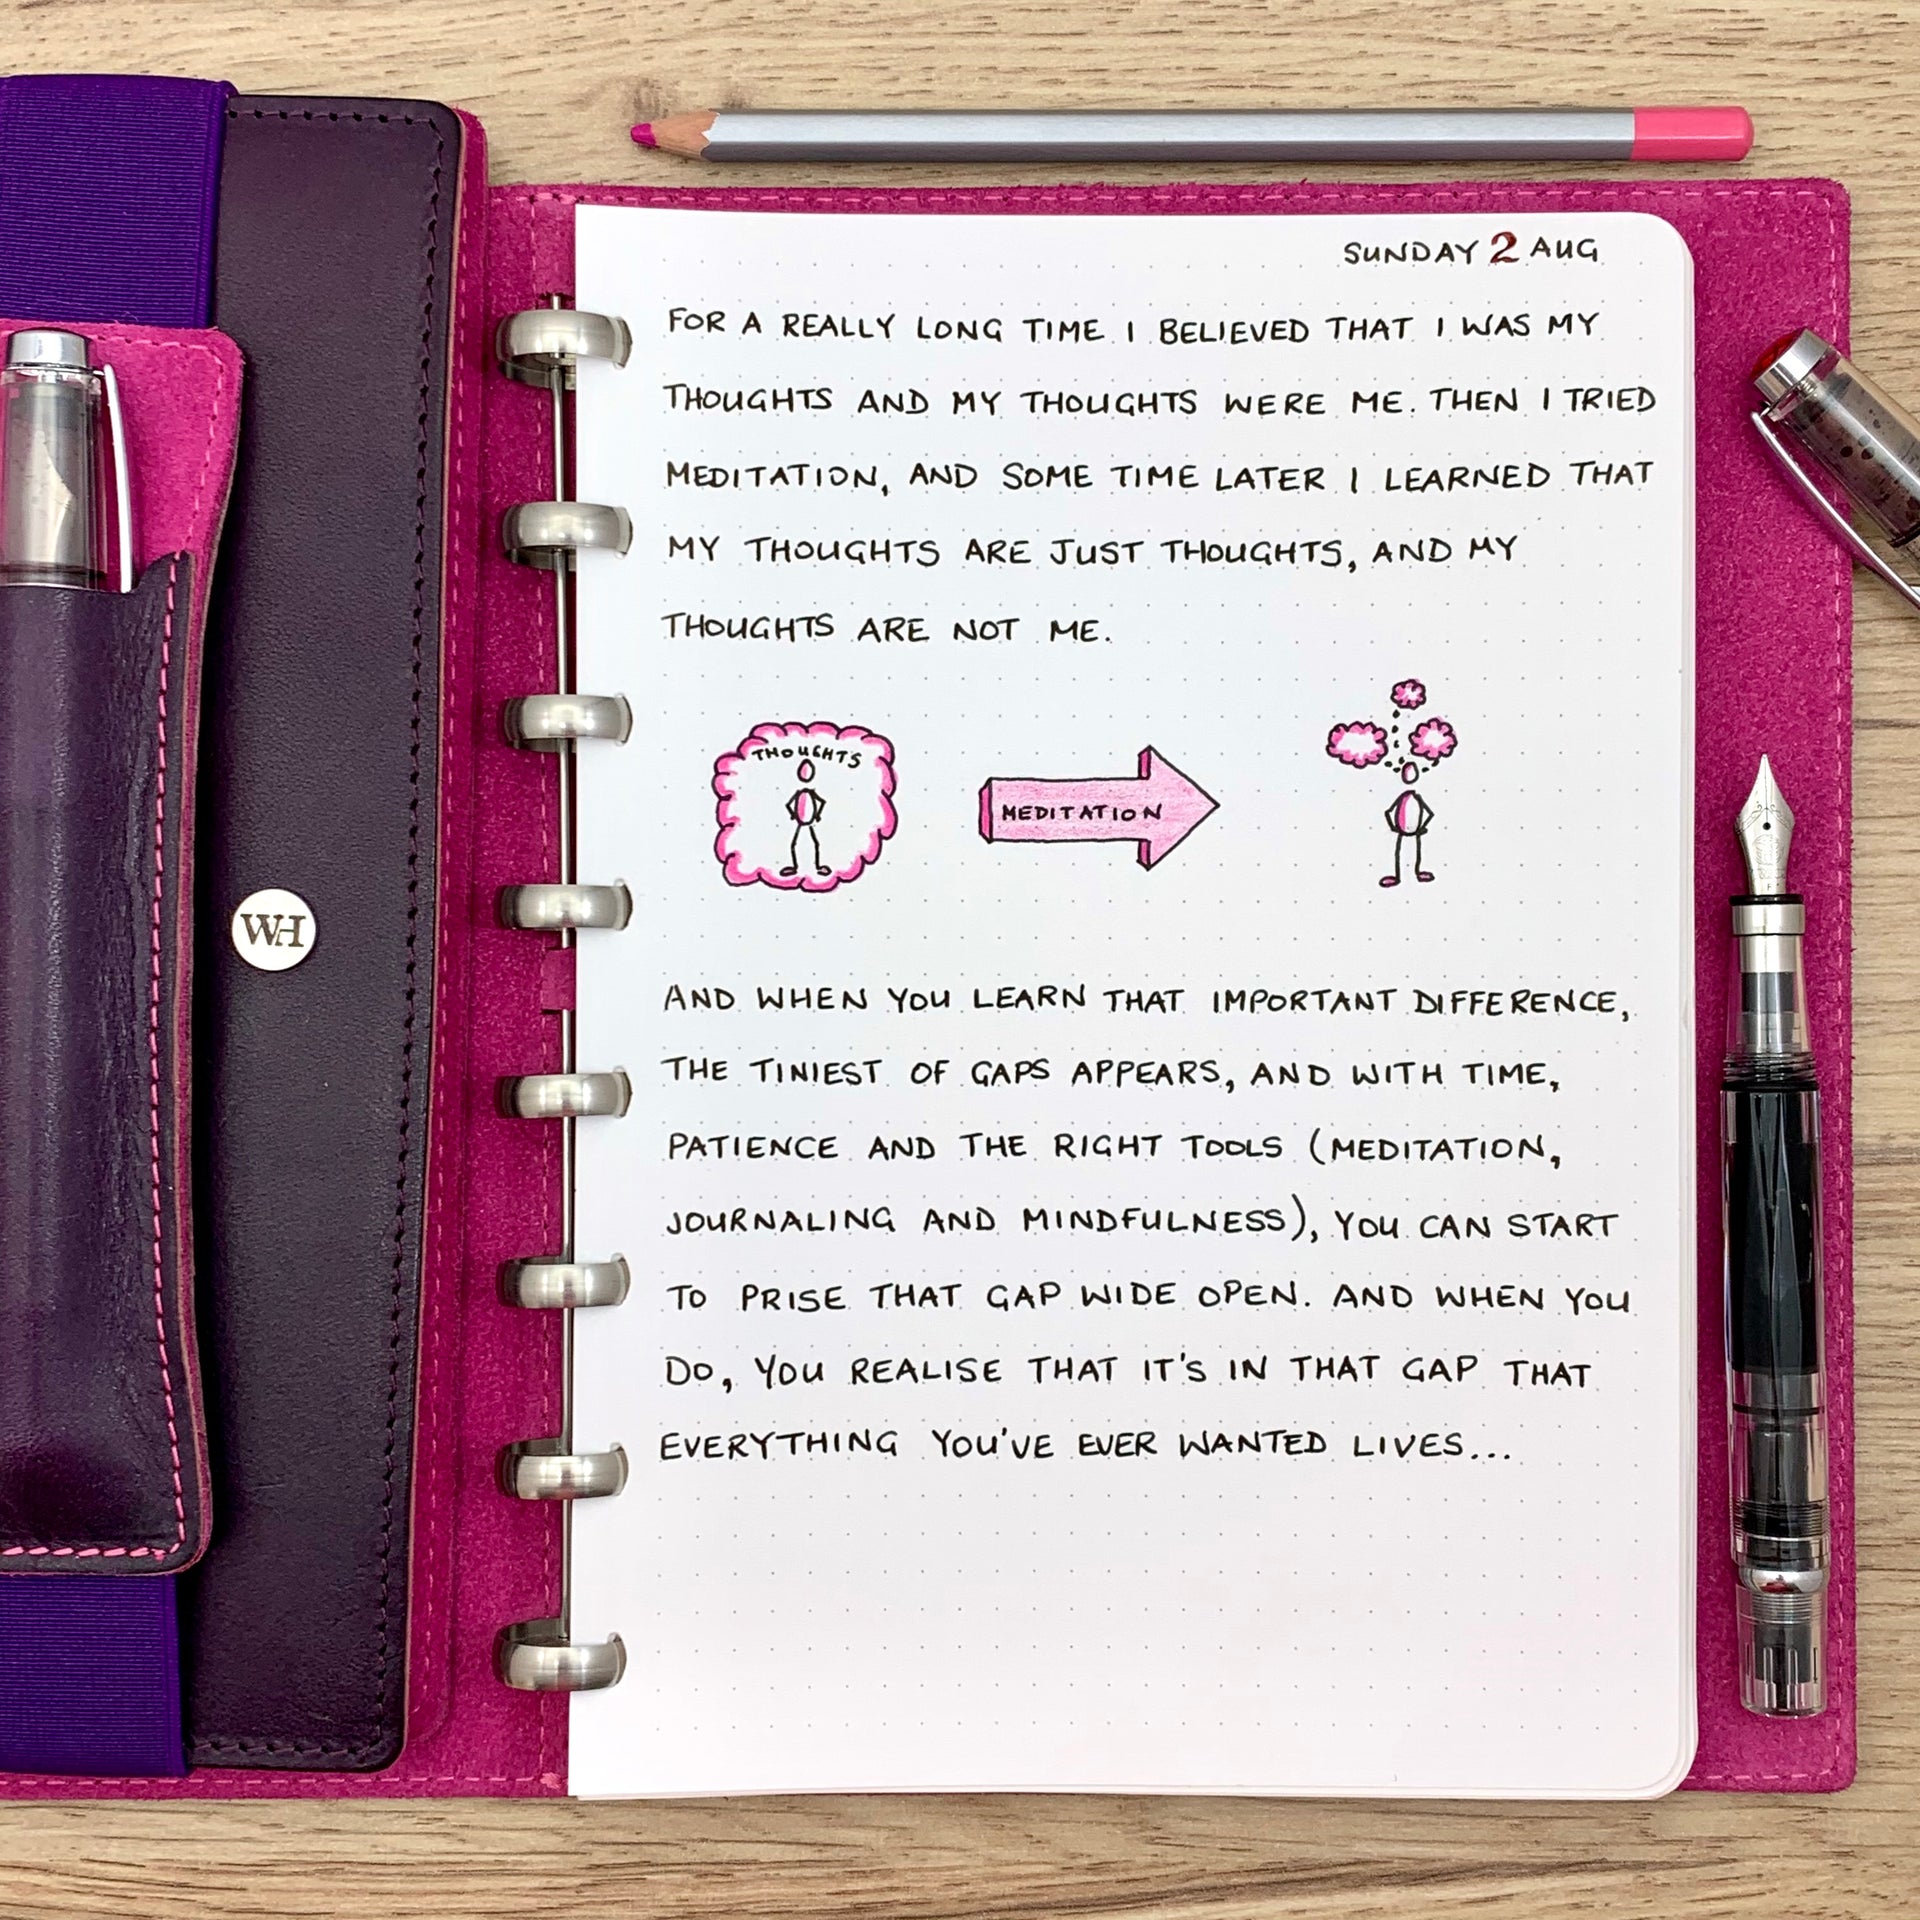 SUNDAY 2 AUG
FOR A REALLY LONG TIME I BELIEVED THAT I WAS MY
THOUGHTS AND MY THOUGHTS WERE ME. THEN I TRIED
MEDITATION, AND SOME TIME LATER I LEARNED THAT
MY THOUGHTS ARE JUST THOUGHTS, AND MY
THOUGHTS ARE NOT ME.
THOUGHTS
MEDITATION
WH
AND WHEN YOU LEARN THAT IMPORTANT DIFFERENCE,
THE TINIEST OF GAPS APPEARS, AND WITH TIME,
PATIENCE AND THE RIGHT TOOLS (MEDITATION,
JOURNALING AND MINDFULNESS), YOU CAN START
TO PRISE THAT GAP WIDE OPEN. AND WHEN YOU
DO, YOU REALISE THAT IT'S IN THAT GAP THAT
EVERYTHING YOU'VE EVER WANTED LIVES...